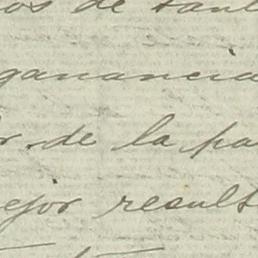 os de tant
ganancia
r de la pa
ejor result